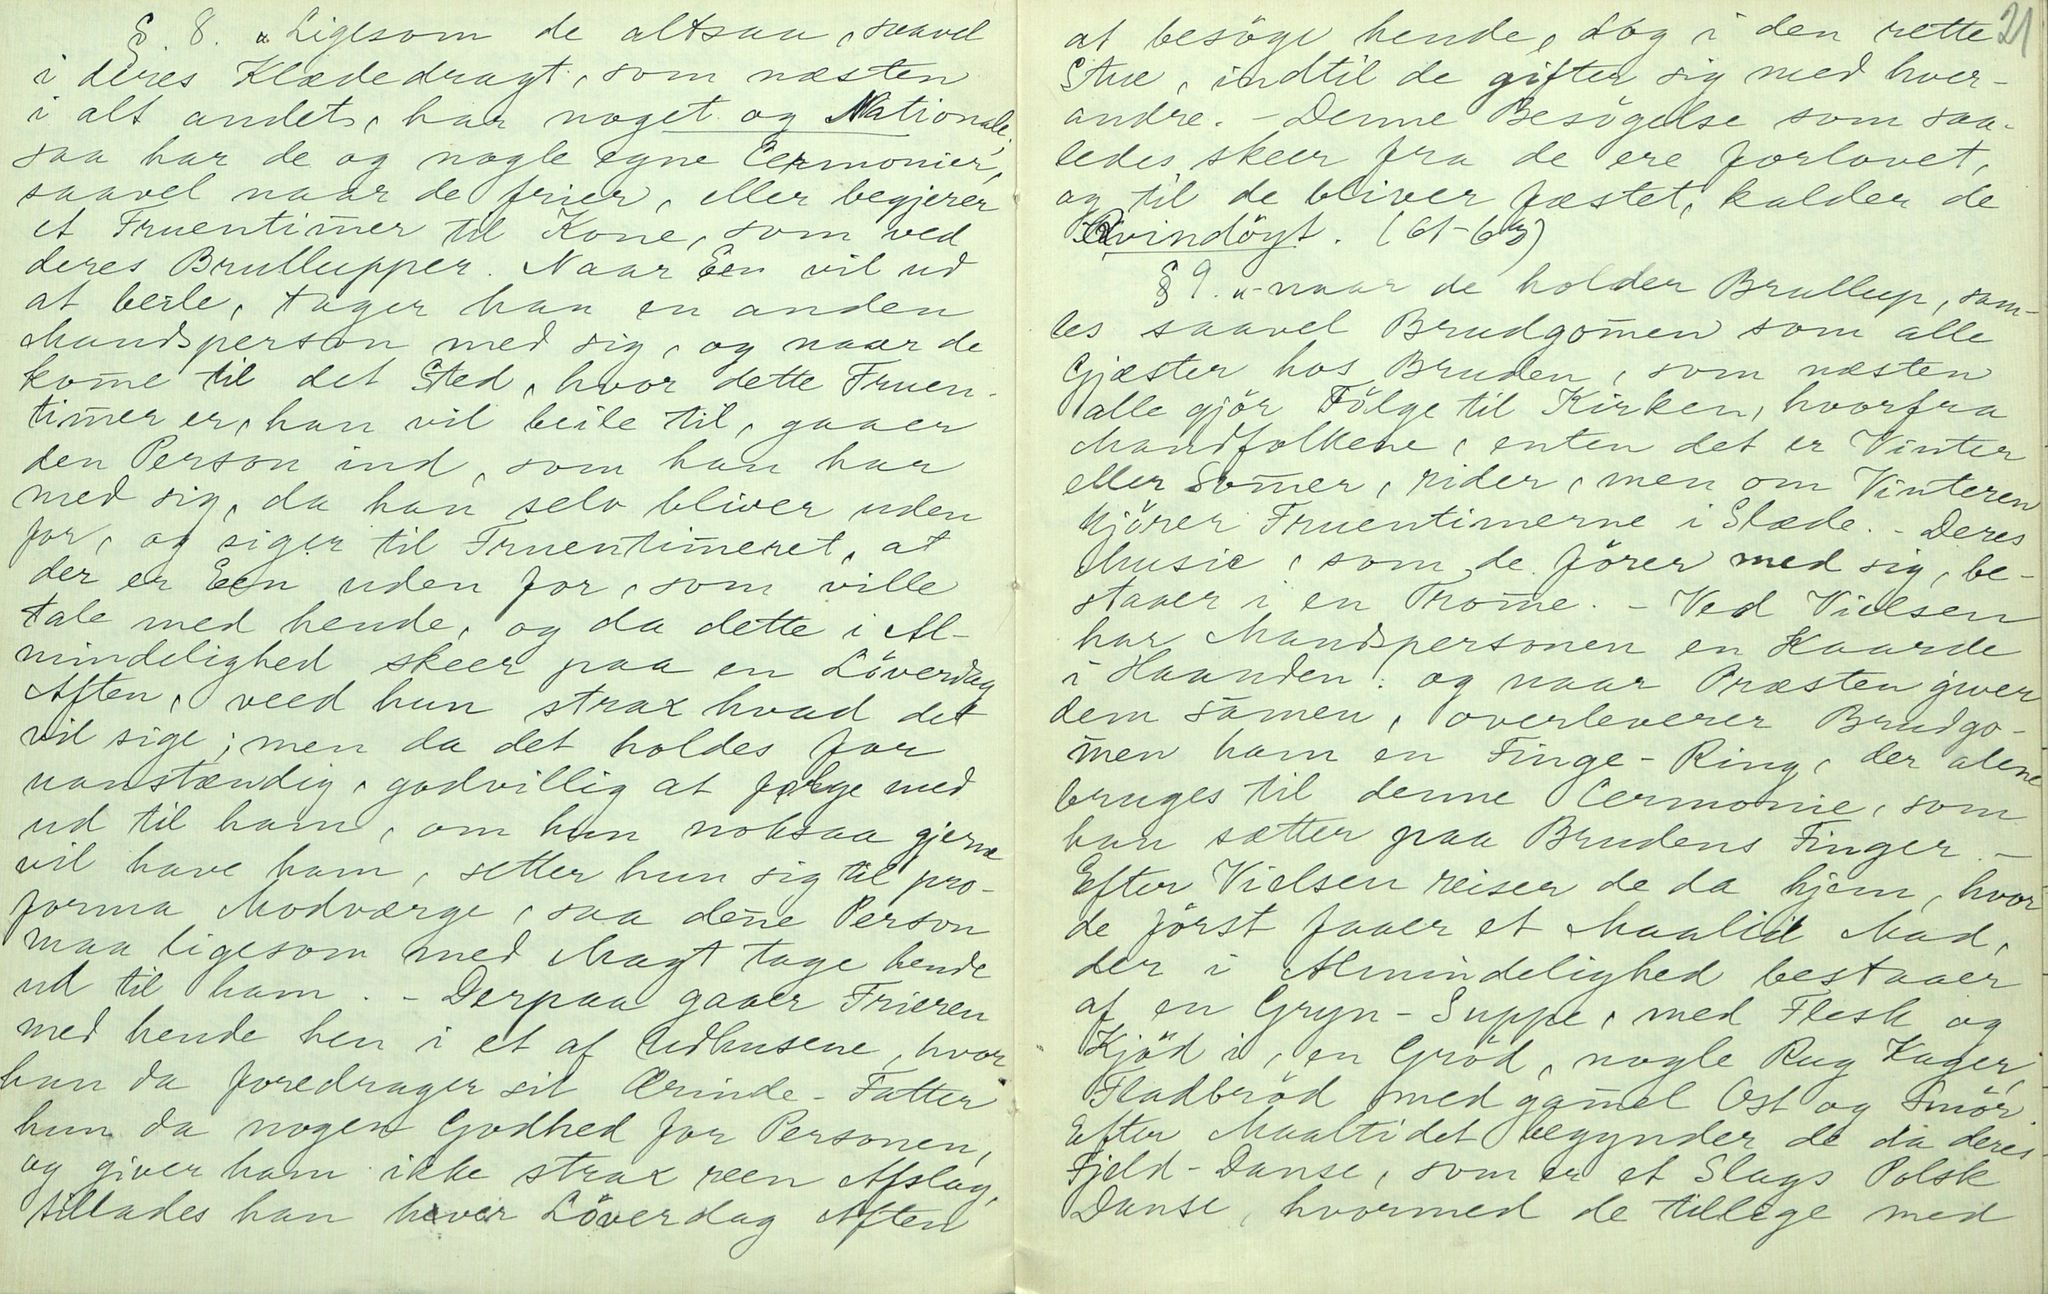 §. 8. „Ligesom de altsaa, saavel
i deres Klædedragt, som næsten
i alt andet, har noget og Nationale,
saa har de og nogle egne Cermonier,
saavel naar de frier, eller begjerer
et Fruentim̄er til Kone, som ved
deres Brullupper. Naar Een vil ud
at beile, tager han en anden
Mandsperson med sig, og naar de
kom̄e til det Sted, hvor dette Fruen-
tim̄er er, han vil beile til, gaaer
den Person ind, som han har
med sig, da han selv bliver uden
for, og siger til Fruentim̄eret, at
der er Een uden for, som ville
tale med hende, og da dette i Al-
mindelighed skeer paa en Löverdag
Aften, veed hun strax hvad det
vil sige; men da det holdes for
uanstændig, godvillig at følge med
ud til ham, om hun noksaa gjerne
vil have ham, setter hun sig til pro-
forma Modværge, saa den̄e Person
maa ligesom med Magt tage hende
ud til ham. - Derpaa gaaer Frieren
med hende hen i et af Udhusene, hvor
han da foredrager sit Ærinde - Fatter
hun da nogen Godhed for Personen,
og giver ham ikke strax reen Afslag,
tillades han hver Löverdag Aften
21
at besöge hende, dog i den rette
Stue, indtil de gifter sig med hver-
andre. - Denne Besögelse som saa-
ledes skeer fra de ere forlovet,
og til de bliver fæstet, kalder de
Qvindöyt. (61-63)
§ 9. „-naar de holder Brullup, sam-
les saavel Brudgom̄en som alle
Gjæster hos Bruden, som næsten
alle gjör Fölge til Kirken, hvorfra
Mandfolkene, enten det er Vinter
eller Som̄er, rider, men om Vinteren
kjörer Fruentimerne i Slæde. - Deres
Music, som de förer med sig, be-
staaer i en Trom̄e. - Ved Vielsen
har Mandspersonen en Kaarde
i Haanden: og naar Præsten giver
dem sam̄en, overleverer Brudgo-
m̄en ham en Finge-Ring, der alene
bruges til denne Cermonie, som
han sætter paa Brudens Finger. -
Efter Vielsen reiser de da hjem, hvor
de först faaer et Maalid Mad,
der i Almindelighed bestaaer
af en Gryn-Suppe, med Flesk og
Kjöd i, en Gröd, nogle Rug Kager,
Fladbröd med gam̄el Ost og Smör.
Efter Maaltidet begynder de da deres
Fjeld-Danse, som er et Slags Polsk
Danse, hvormed de tillige med